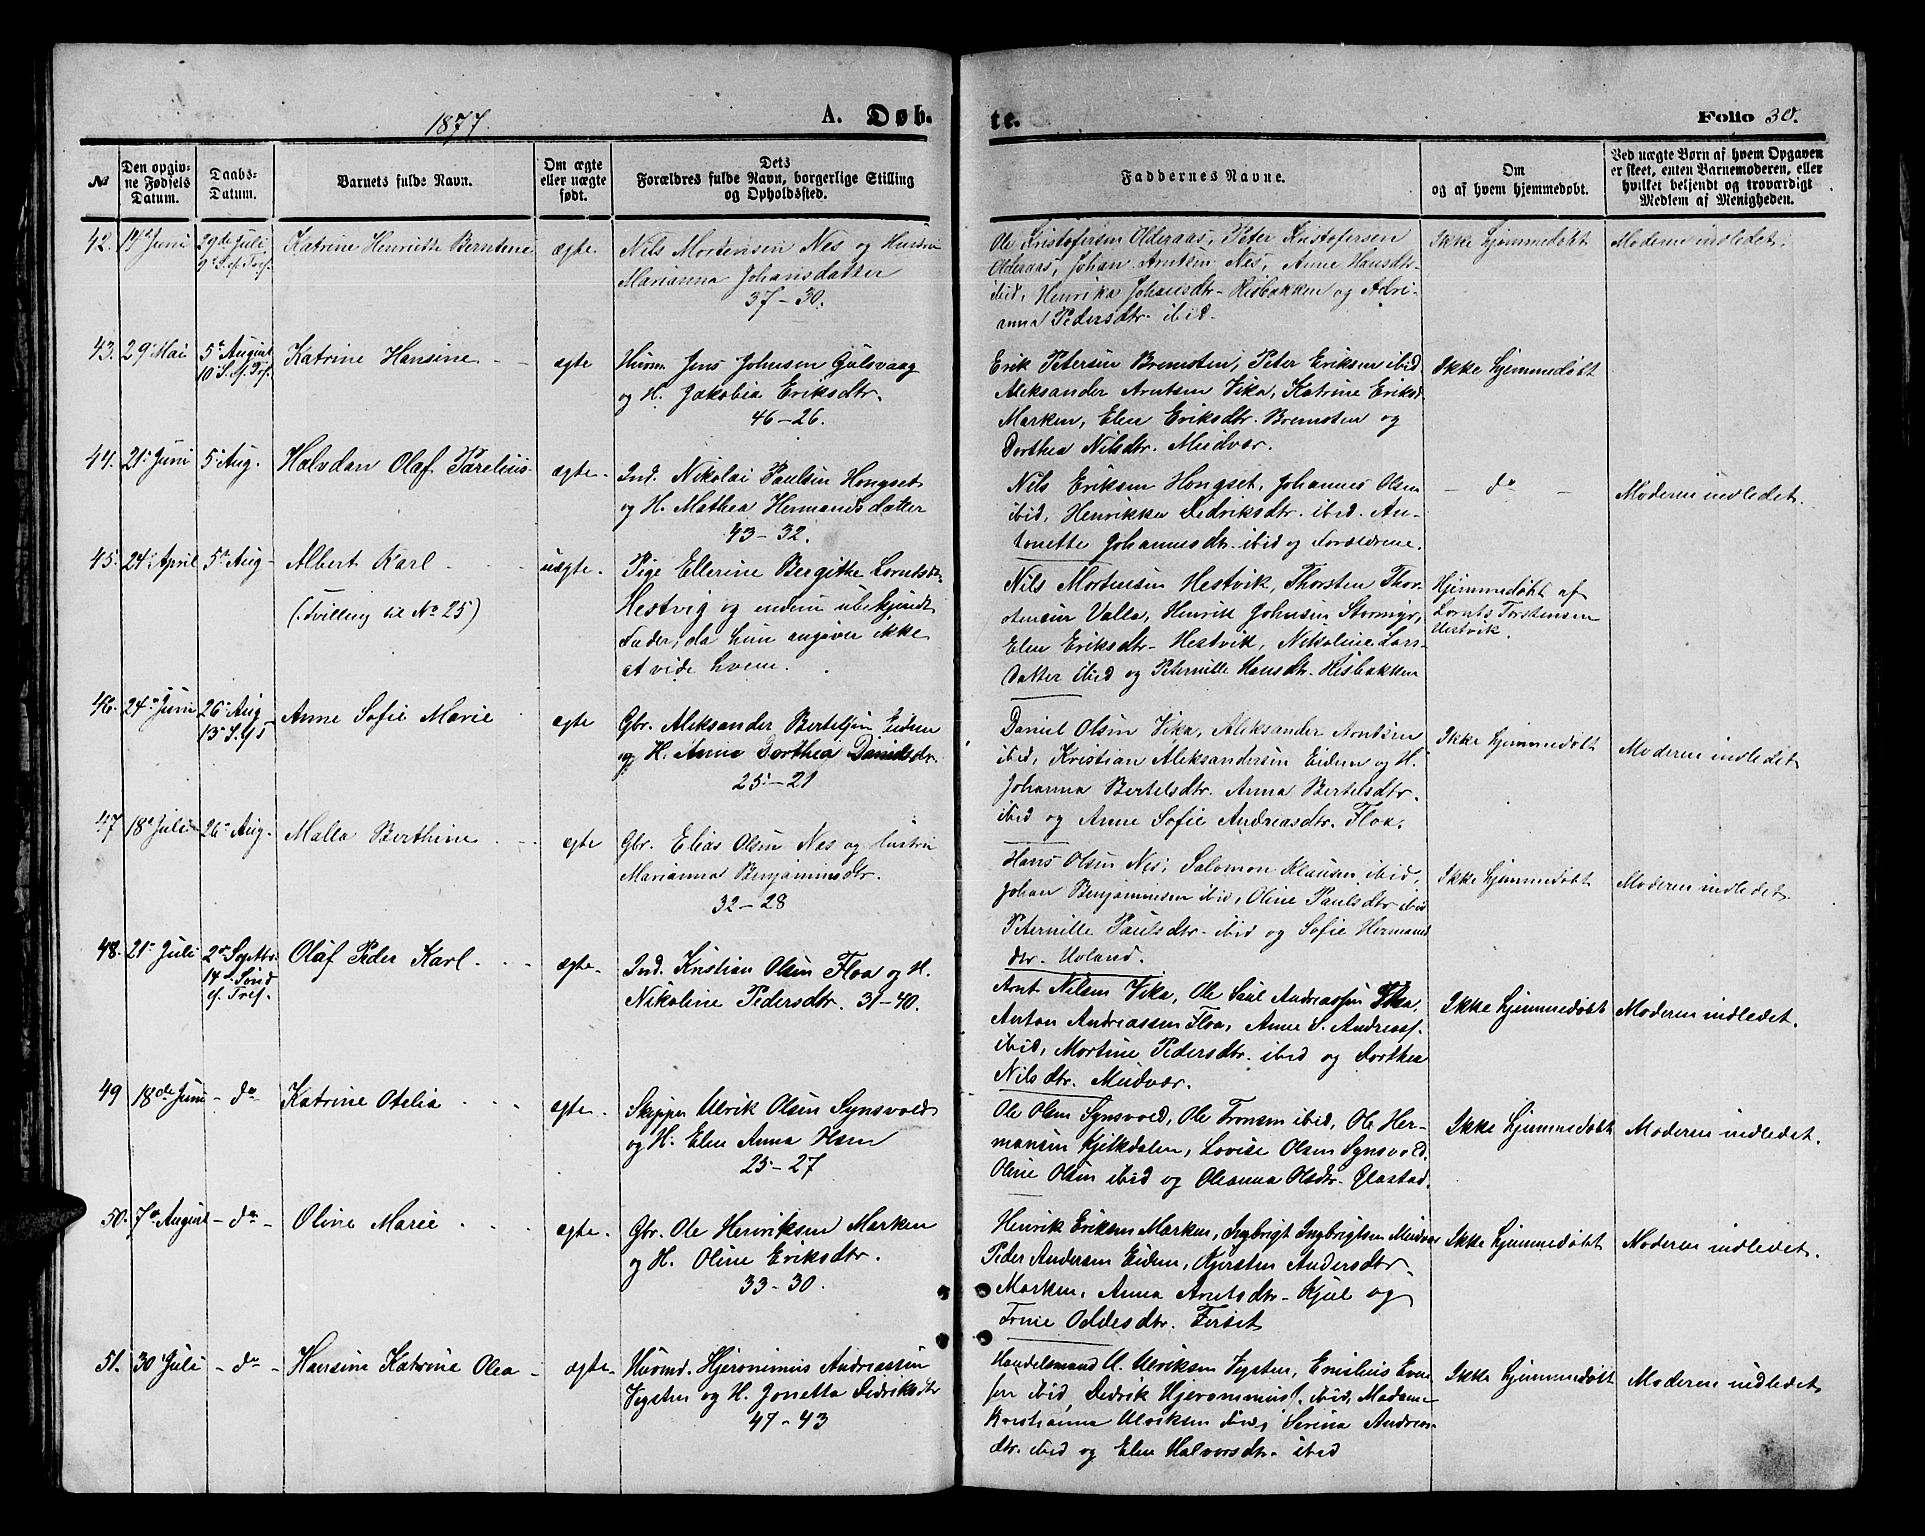 1877.
A. Døb-
te.
Folio 30.
№
Den opgiv-
ne Fødsels
Datum.
Daabs-
Datum.
Barnets fulde Navn.
Om ægte
eller uægte
født.
Dets
Forældres fulde Navn, borgerlige Stilling
og Opholdssted.
Faddernes Navne.
Om
og af hvem hjemmedøbt.
Ved uægte Børn af hvem Opgaven
er skeet, enten Barnemoderen, eller
hvilket beljendt og troværdigt
Medlem af Menigheden.
42. Juni 29de Juli Katrine Henriette Berntine ægte
9 S. ef. Tref.
Nils Mortensen Nes og Hustru
Marianna Johansdatter
37-30.
Ole Kristofersen Olderaas, Peter Kristofersen
Olderaas, Johan Arntsen Nes, Anne Hansdtr.
ibid, Henrika Johansdtr. Risbakken og Adri-
anna Pedersdtr. ibid.
Ikke hjemmedøbt
Moderen indledet.
43. 29 Mai 5te August Katrine Hansine ægte
10 S. ef. Tref.
Husm. Jens Johnsen Gulsvaag
og H. Jakobia Eriksdtr.
46-26.
Erik Petersen Bremsten, Peter Eriksen ibid
Aleksander Arntsen Vika, Katrine Eriksd.
Marken, Elen Eriksdtr. Bremsten og
Dorthea Nilsdtr. Mudvær.
Ikke hjemmedøbt
44. 21 Juni 5 Aug. Halvdan Olaf Torelius ægte
Ind. Nikolai Paulsen Hongset
og H. Mathea Hermandsdatter
43-32.
Nils Eriksen Hongset, Johannes Olsen
ibid, Henrikka Didriksdtr. ibid. An-
tonette Johannesdtr. ibid og Forældrene.
- do -
Moderen indledet.
45. 24 April 5te Aug Albert Karl uægte.
(Tvilling til No 25)
Pige Ellerine Bergitte Lorntsd.
Hestvig og endnu ubekjendt
Fader, da hun angiver ikke
at vide hvem.
Nils Mortensen Hestvik, Thorsten Thor-
stensen Valla, Henrik Johnsen Stormyr,
Elen Eriksdtr. Hestvik, Nikoline Lars-
datter ibid og Peternille Hansdtr. Risbakken
Hjemmedøbt af
Lornts Torstensen
Hestvik.
46. 24 Juni 26 Aug Anne Sofie Marie ægte
Gbr. Aleksander Bertelsen Eidem
og H. Anna Dorthea Danielsdtr.
25-21
Daniel Olsen Vika, Aleksander Arntsen
ibid, Kristian Aleksandersen Eidem og H.
Johanna Bertelsdtr. Anna Bertelsdtr.
ibid og Anne Sofie Andreasdtr. Floa.
Ikke hjemmedøbt
Moderen indledet
47 18 Juli 26 Aug. Malla Berthine ægte
Gbr. Elias Olsen Nes og Hustru
Marianna Benjaminsdtr.
32-28
Hans Olsen Nes, Salomon Klausen ibid,
Johan Benjaminsen ibid, Oline Paulsdtr ibid
Peternille Paulsdtr. ibid og Sofie Hermans
dtr. Utland.
Ikke hjemmedøbt
Moderen indledet
48. 21 Juli 2 Septbr. Olaf Peder Karl ægte.
14de Sønd
ef. Tref.
Ind. Kristian Olsen Floa og H.
Nikoline Pedersdtr. 31-40.
Arnt Nilsen Vika, Ole Paul Andreassen Vika,
Anton Andreassen Floa, Anne S. Andreasd.
ibid, Mortine Pedersdtr. ibid og Dorthea
Nilsdtr. Mudvær.
Ikke hjemmedøbt
Moderen indledet.
49 18de Juni - do - Katrine Otelia ægte.
Skipper Ulrik Olsen Synsvold
og H. Elen Anna Olsen
25-27
Ole Olsen Synsvold, Ole Tronsen ibid, Ole Her-
mansen Kjelkdalen, Lovise Olsen Synsvold.
Oline Olsen ibid og Oleanna Olsdtr. Glastad.
Ikke hjemmedøbt
Moderen indledet.
50. 7 August - do - Oline Marie ægte.
Gbr. Ole Henriksen Marken
og H. Oline Eriksdtr.
33-30.
Henrik Eriksen Marken, Ingbrigt Ingbrigtsen Mudvær
Peder Andersen Eidem, Kjersten Andersdtr.
Marken, Anna Arntsdtr. Kjul og
Trine Oddesdtr. Ferset
Ikke hjemmedøbt
Moderen indledet.
51. 30 Juli - do - Hansine Katrine Olea ægte
Husmd. Hjeronimus Andreassen
Vegsten og H. Jonetta Didriksdtr
47-43
Handelsmand U. Ulriksen Vegsten, Emilius Even
sen ibid, Didrik Hjeronimus. ibid, Madame
Kristianna Ulriksen ibid, Serina Andreas-
dtr. ibid og Elen Halvorsdtr. ibid
Ikke hjemmedøbt
Moderen indledet